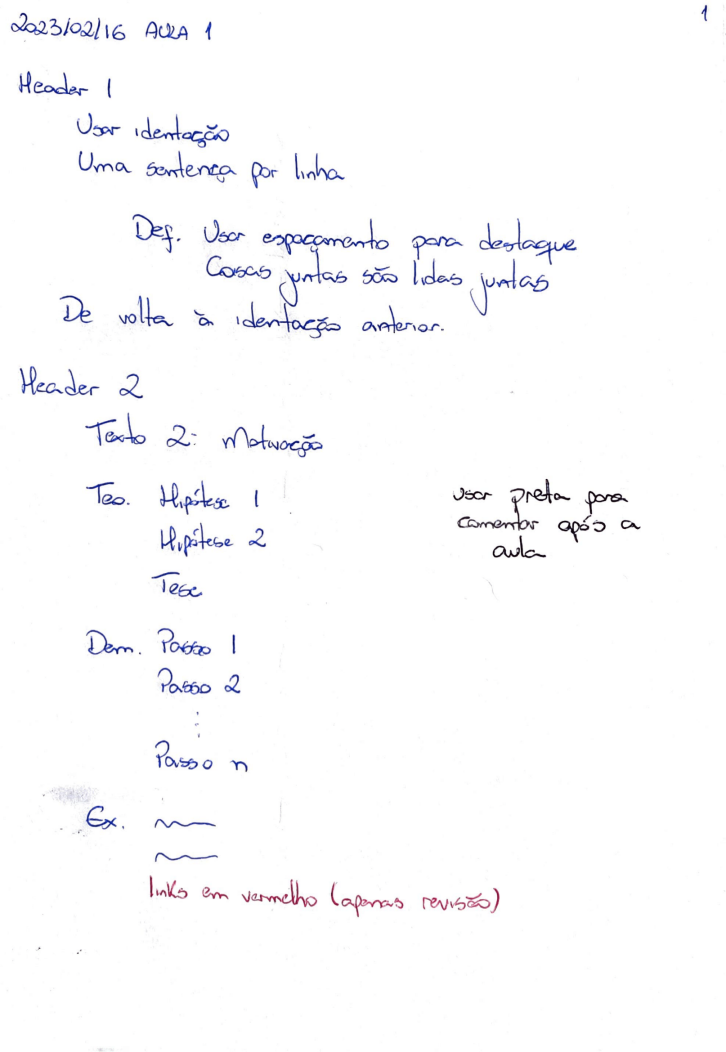 2023/02/16 AULA 1
1
Header 1
Usar identação
Uma sentença por linha
Def. Usar espaçamento para destaque
Coisas juntas são lidas juntas
De volta à identação anterior.
Header 2
Texto 2: Motivação
Teo. Hipótese 1
Hipótese 2
Tese
usar preta para
comentar após a
aula
Dem. Passo 1
Passo 2
⋮
Passo n
Ex.
links em vermelho (apenas revisão)